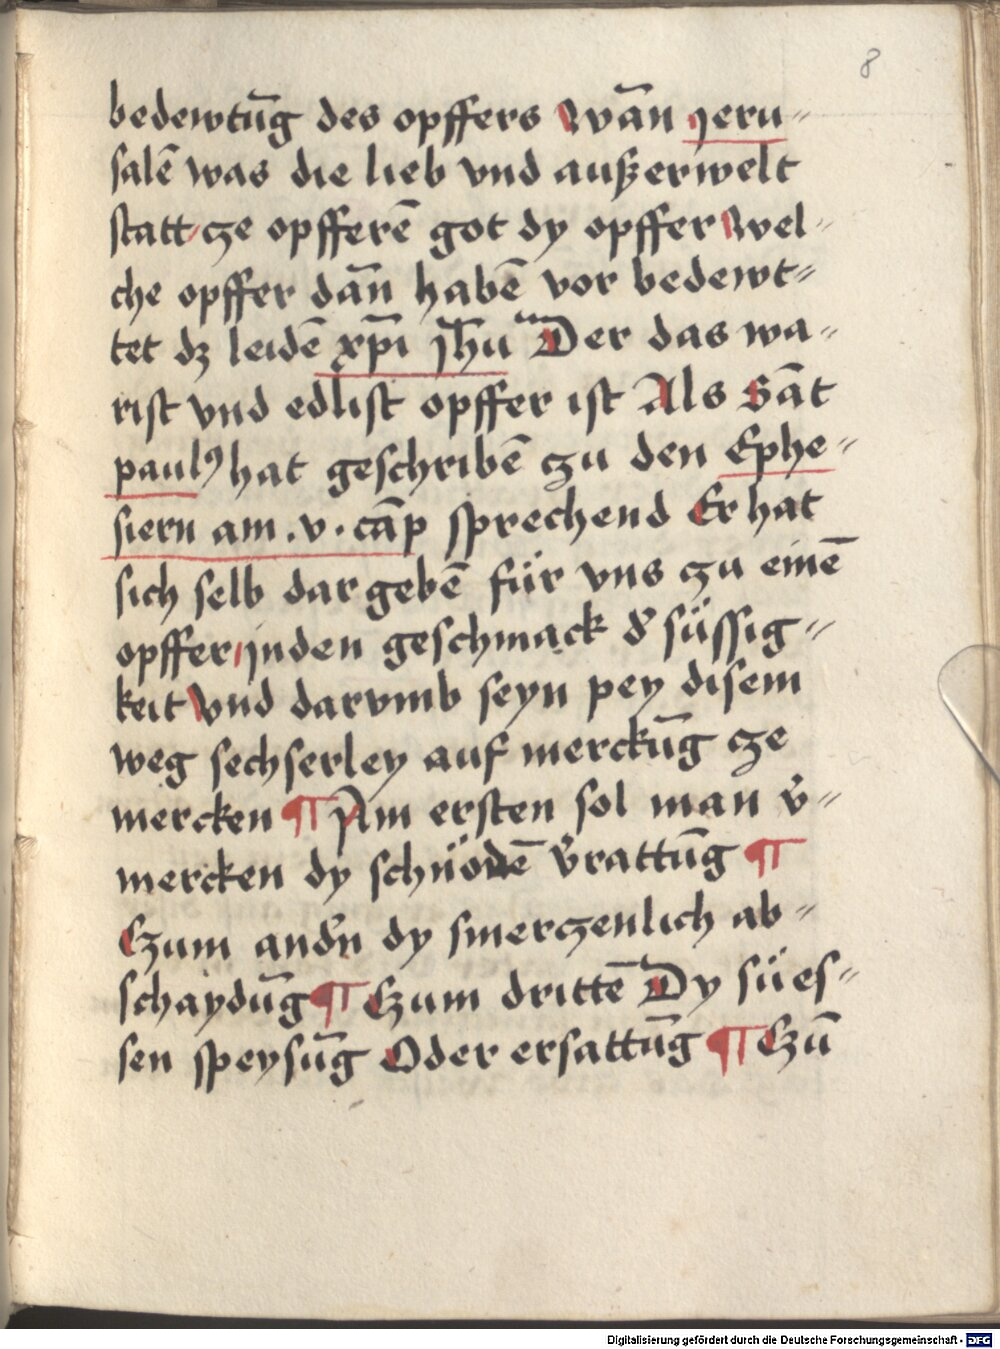 8
bedewtūg des opffers Wān Jeru-
salē was die lieb vnd außerwelt
statt cze opfferē got dy opffer Wel-
che opffer dān habē vor bedewt-
tet dz leidē xp̄i Jh̄u Der das wa-
rist vnd edlist opffer ist Als Sāt
paulꝰ hat geschribē czu den Ephe-
siern am .v. cāp sprechend Er hat
sich selb dar gebē für vns czu einē
opffer jnden geschmack d̕ süssig-
keit Vnd darvmb seyn pey disem
weg sechserley auf merckūg cze
mercken ¶ Am ersten sol man v̕-
mercken dy schnödē v̕rattūg ¶
Czum and̕n dy smerczenlich ab-
schaydūg ¶ Czum drittē Dy sües-
sen speysūg Oder ersattūg ¶ Czū
Digitalisierung gefördert durch die Deutsche Forschungsgemeinschaft - DFG